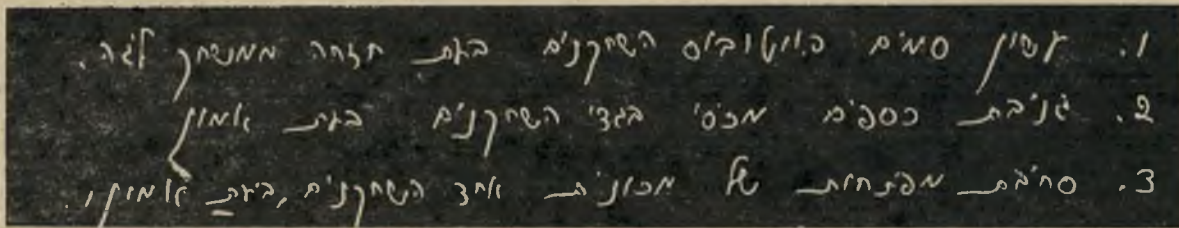 1. עשון סמים באוטובוס השחקנים בעת חזרה ממשחק ליגה.
2. גניבת כספים מכיסי בגדי השחקנים בעת אמון
3. סחיבת מפתחות של מכונית אחד השחקנים, בעת אמון,